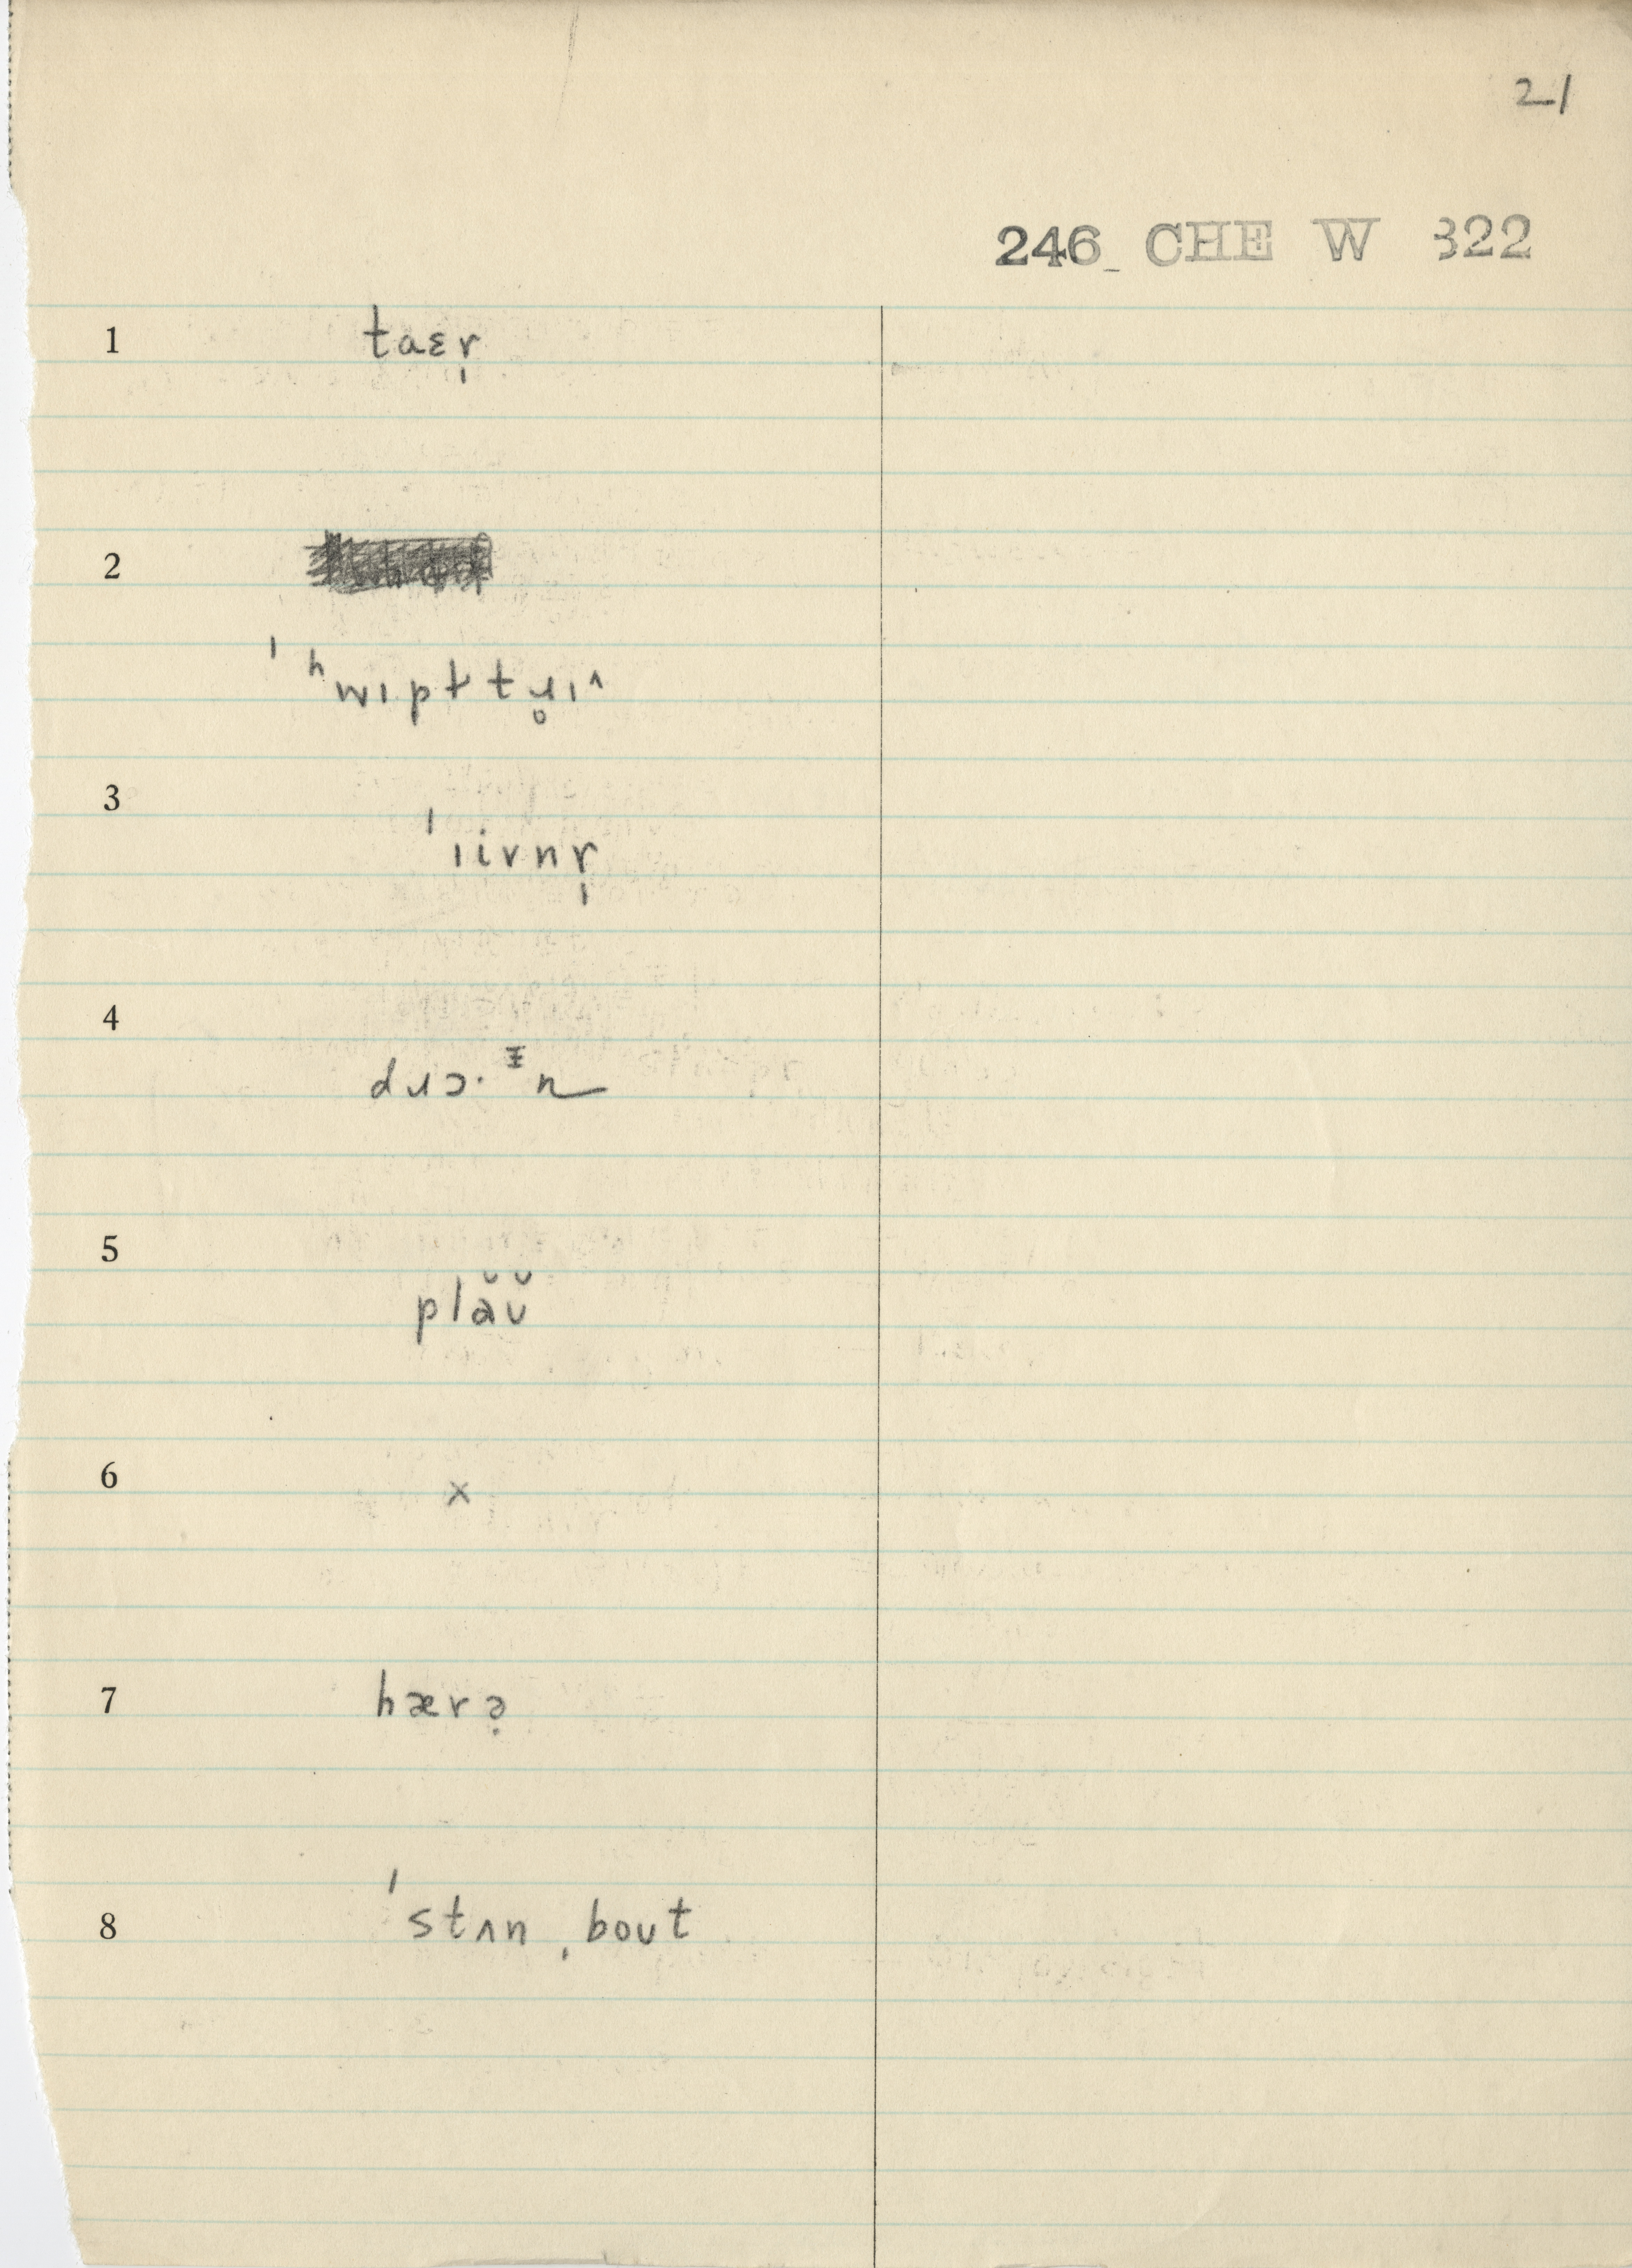 21
246 CHE W 322
1 taɛr̩
2
ˈʰwɪpɫtɹ̥ɪ^
3
ˈɪivnr̩
4
dɹɔ·ᵻn
5
plə̆ʊ̆
6 ×
7 hærə̣
8 ˈstʌn ˌboʊt